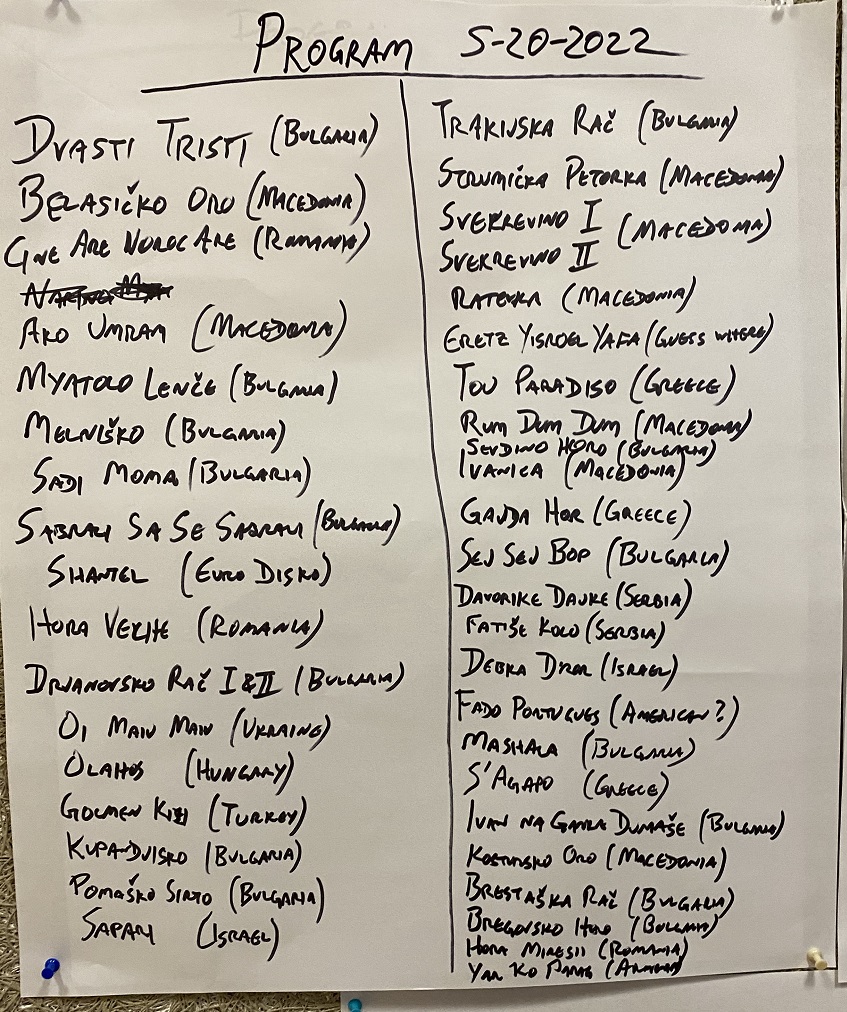 PROGRAM 5-20-2022
DVASTI TRISTI (BULGARIA)
BELASIČKO ORO (MACEDONIA)
CINE ARE NOROC ARE (ROMANIA)
AKO UMRAM (MACEDONIA)
MYATOLO LENČE (BULGARIA)
MELNIŠKO (BULGARIA)
SADI MOMA (BULGARIA)
SABRALI SA SE SABRALI (BULGARIA)
SHANTEL (EURO DISKO)
HORA VECHE (ROMANIA)
DRJANOVSKO RAČ I & II (BULGARIA)
OI MAIU MAIU (UKRAINE)
OLAHOS (HUNGARY)
(TURKEY)
KUPANDVISKO (BULGARIA)
POMAŠKO SIRTO (BULGARIA)
SAPARI (ISRAEL)
TRAKIJSKA RAČ (BULGARIA)
STRUMIČKA PETORKA (MACEDONIA)
SVEKREVINO I
SVEKREVINO II (MACEDONIA)
RATEVKA (MACEDONIA)
ERETZ YISROEL YAFA (GUESS WHERE)
TOU PARADISO (GREECE)
RUM DUM DUM (MACEDONIA)
SEVDINO HORO (BULGARIA)
IVANICA (MACEDONIA)
GAJDA HOR (GREECE)
SEJ SEJ BOP (BULGARIA)
DAVORIKE DAJKE (SERBIA)
FATIŠE KOLO (SERBIA)
DEBKA DROR (ISRAEL)
FADO PORTUGUES (AMERICAN?)
MASHALA (BULGARIA)
S'AGAPO (GREECE)
IVAN NA GANKA DUMAŠE (BULGARIA)
KOSTURSKO ORO (MACEDONIA)
BRESTAŠKA RAČ (BULGARIA)
BREGOVSKO HORO (BULGARIA)
HORA MIRESII (ROMANIA)
YAR KO PARAG (ARMENIA)